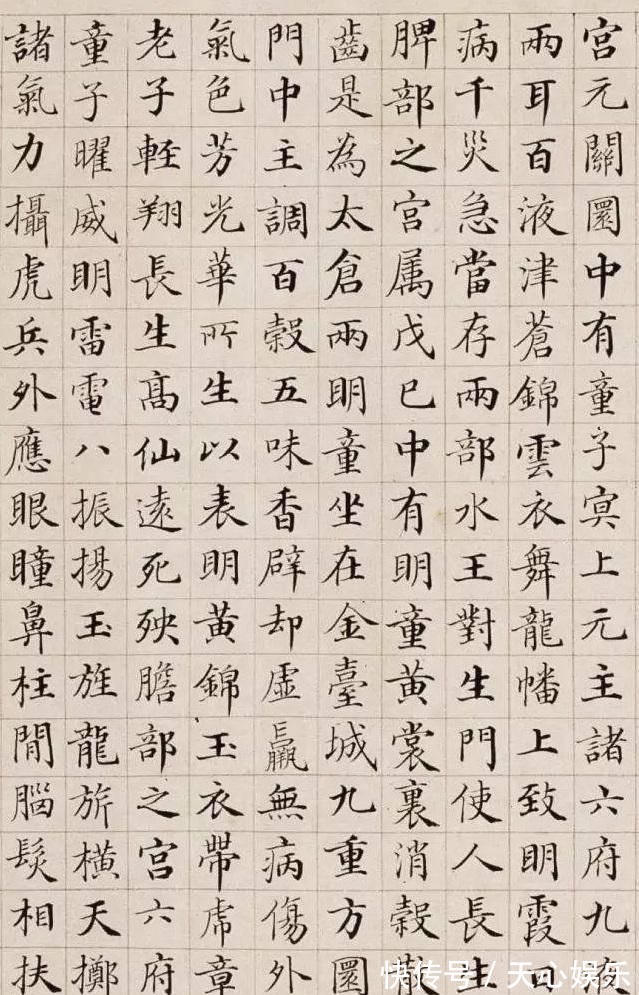 宮元關圜中有童子冥上元主諸六府九液
兩耳百液津蒼錦雲衣舞龍幡上致明霞日
病千災急當存兩部水王對生門使人長生
脾部之宮属戊巳中有明童黃裳裏消穀散
齒是為太倉兩明童坐在金臺城九重方圜
門中主調百穀五味香辟却虛羸無病傷外
氣色芳光華所生以表明黃錦玉衣帶虎章
老子輕翔長生髙仙遠死殃膽部之宮六府
童子曜威明雷電八振揚玉旌龍旂橫天擲
諸氣力攝虎兵外應眼瞳鼻柱間腦髮相扶
快传号/天心娱乐